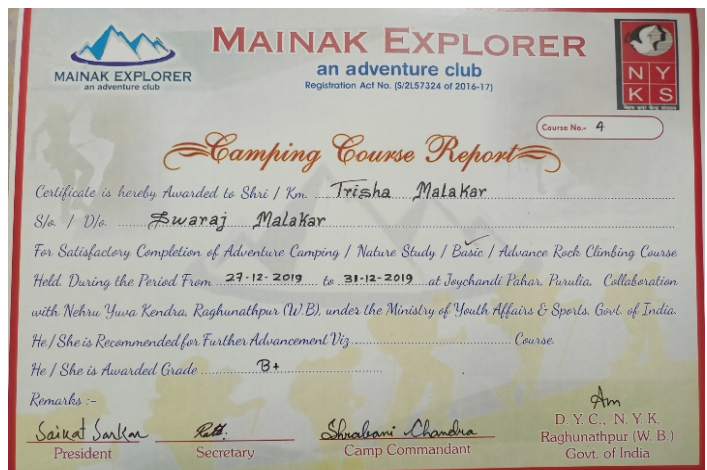 MAINAK EXPLORER
an adventure club
Registration Act No. (S/2L57324 of 2016-17)
MAINAK EXPLORER
an adventure club
N Y
K S
Course No.- 4
Camping Course Report
Certificate is hereby Awarded to Shri / Km. Trisha Malakar
S/o. / D/o. Swaraj Malakar
For Satisfactory Completion of Adventure Camping / Nature Study / Basic / Advance Rock Climbing Course
Held. During the Period From 27-12-2019 to 31-12-2019 at Joychandi Pahar, Purulia, Collaboration
with Nehru Yuva Kendra, Raghunathpur (W.B), under the Ministry of Youth Affairs & Sports, Govt. of India.
He / She is Recommended for Further Advancement Viz. Course.
He / She is Awarded Grade B+
Remarks :-
Saikat Sarkar
President
Secretary
Shrabani Chandra
Camp Commandant
D. Y. C., N. Y. K.
Raghunathpur (W. B.)
Govt. of India